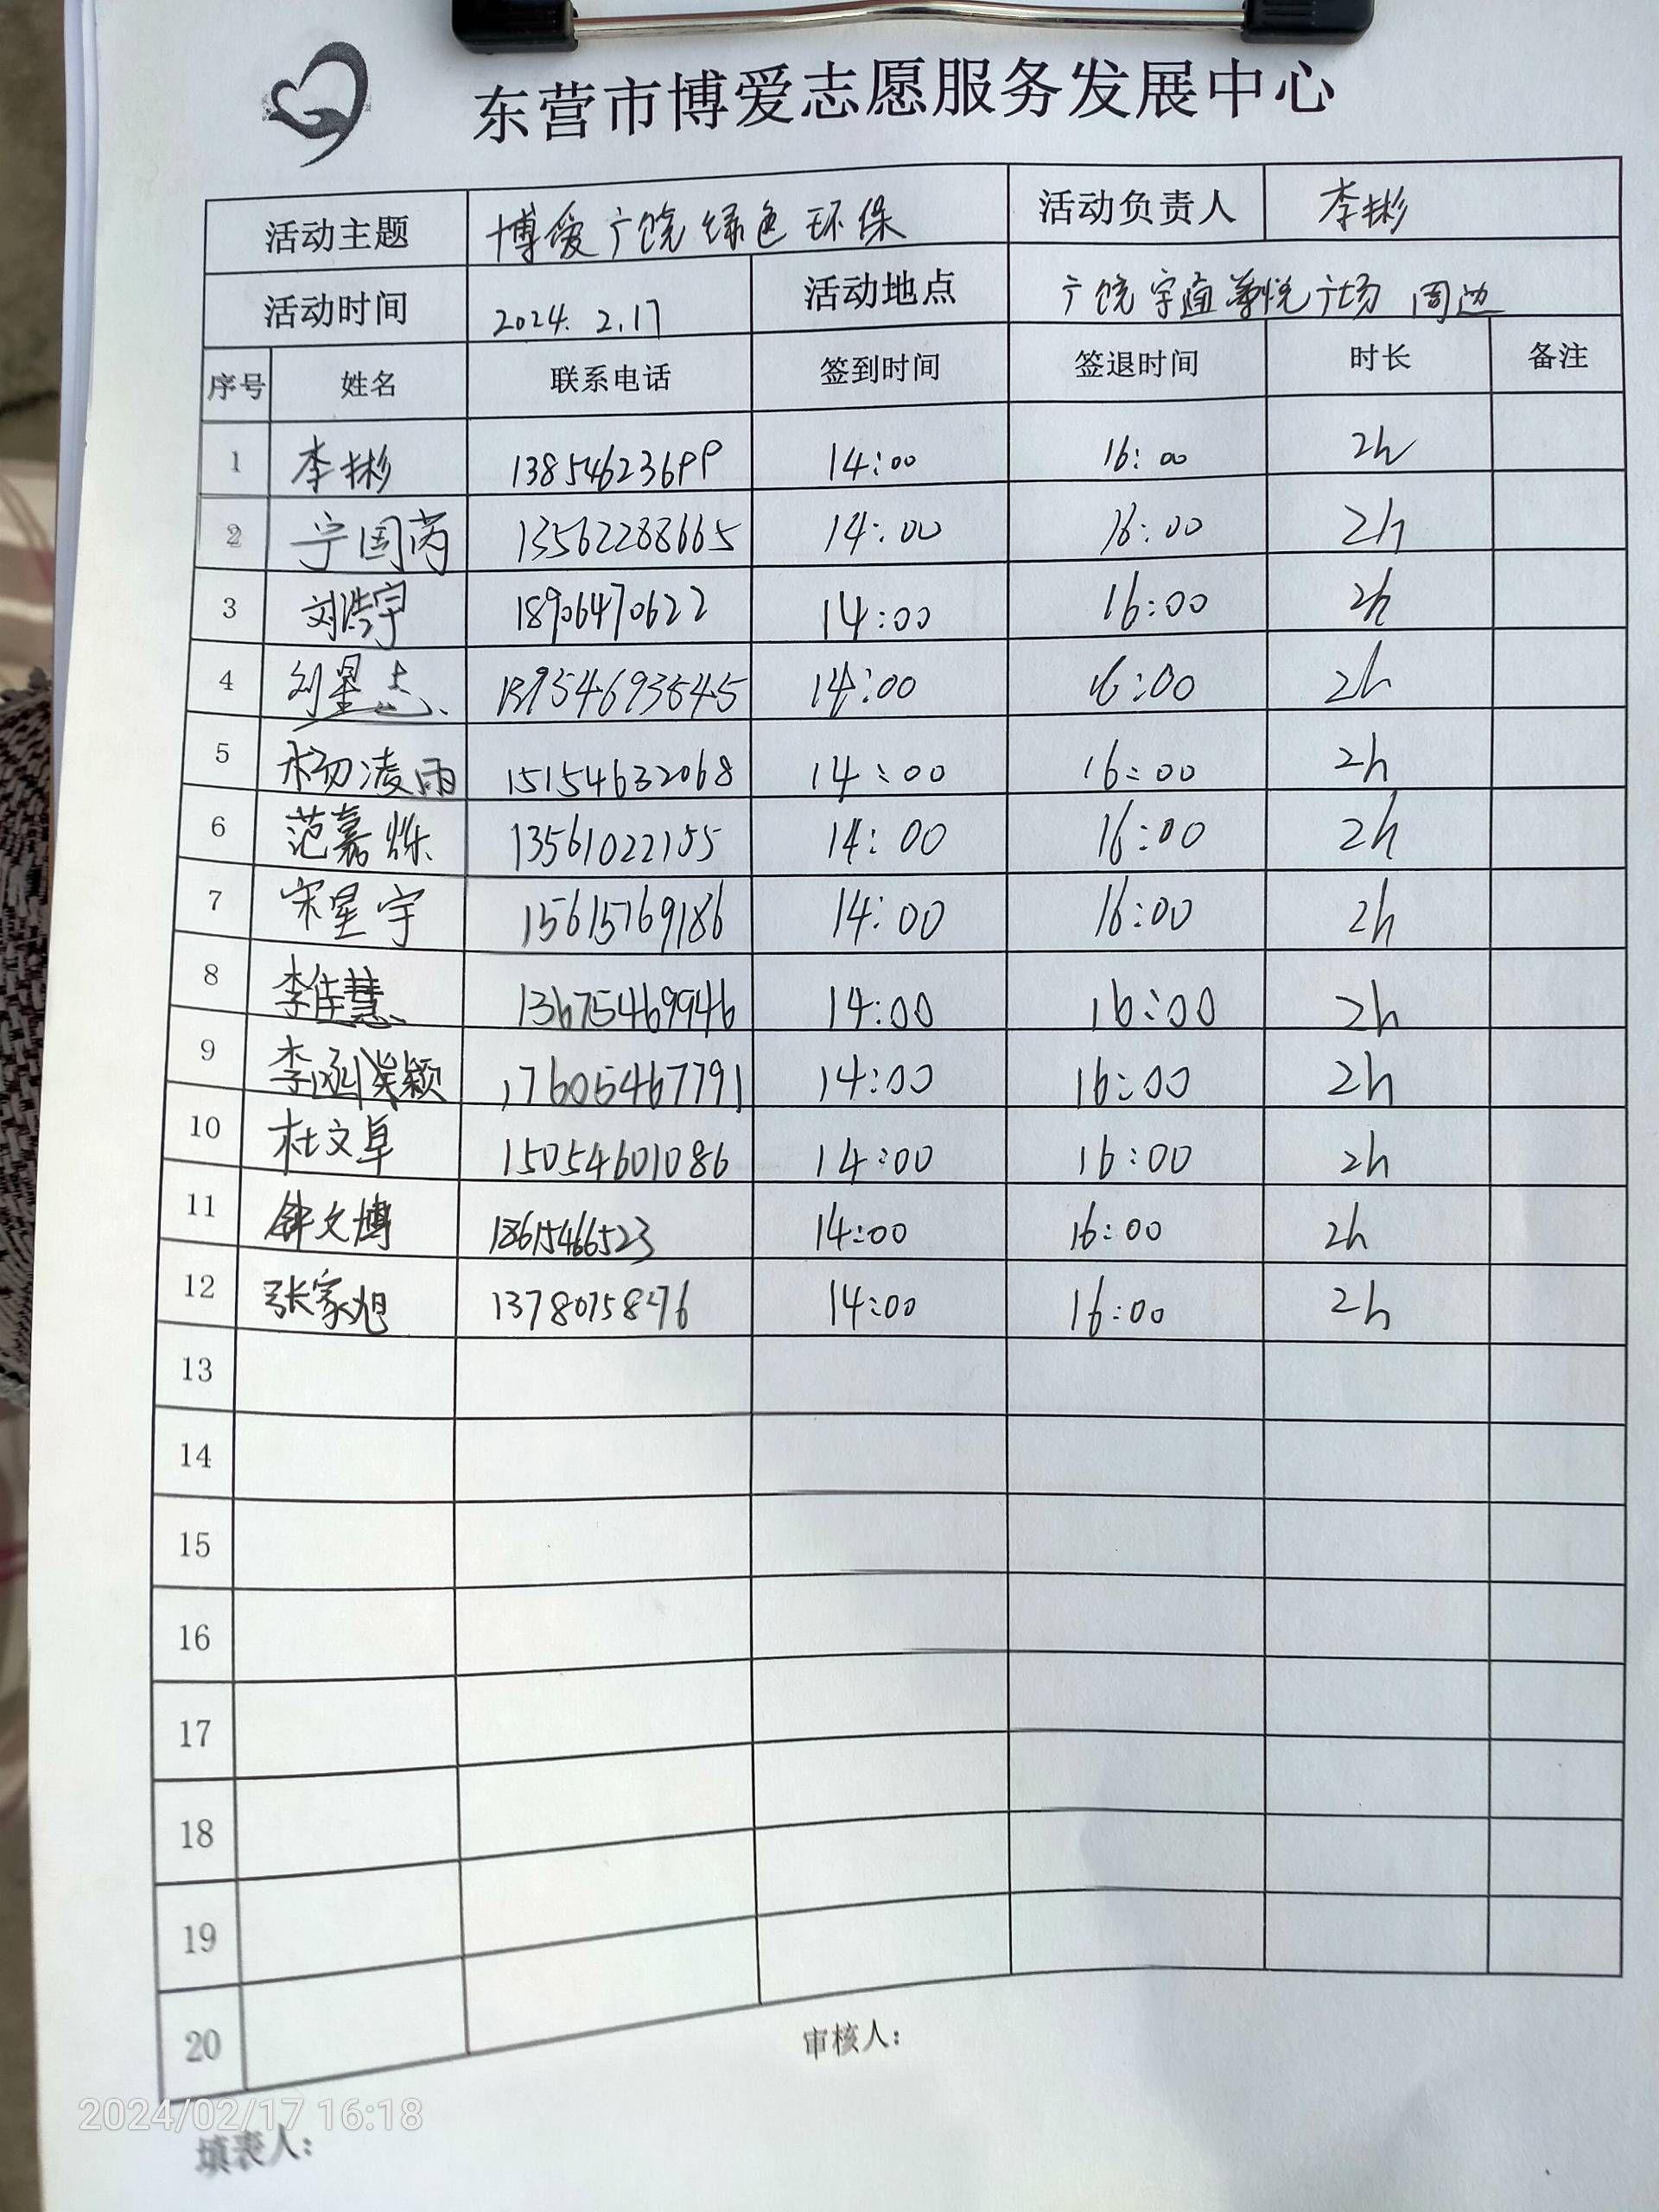 东营市博爱志愿服务发展中心
活动主题 博爱广饶 绿色环保 活动负责人 李彬
活动时间 2024.2.17 活动地点 广饶 广场 周边
序号 姓名 联系电话 签到时间 签退时间 时长 备注
1 李彬 13854623699 14:00 16:00 2h
2 宁国芮 13562288665 14:00 16:00 2h
3 刘浩宇 18906470622 14:00 16:00 2h
4 刘星志 14:00 16:00 2h
5 杨凌雨 15154632068 14:00 16:00 2h
6 范嘉烁 13561022155 14:00 16:00 2h
7 宋星宇 15615769186 14:00 16:00 2h
8 李佳慧 13675469946 14:00 16:00 2h
9 李 颖 17605467791 14:00 16:00 2h
10 杜文卓 15054601086 14:00 16:00 2h
11 钟文博 18615466523 14:00 16:00 2h
12 张家旭 13780758276 14:00 16:00 2h
13
14
15
16
17
18
19
20
审核人:
2024/02/17 16:18
填表人: